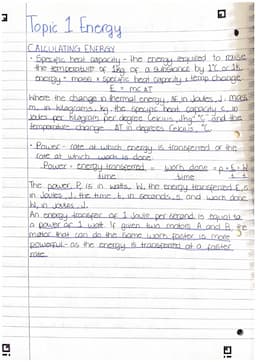 Topic 1 Energy
CALCULATING ENERGY
• Specific heat capacity - the energy required to raise
the temperature of 1kg of a substance by 1°C or 1K
energy = mass × specific heat capacity × temp change
E = mcΔT
Where the change in thermal energy, ΔE in joules, J, mass
m, in kilograms, kg, the specific heat capacity c, in
joules per kilogram per degree Celcius, and the
temperature change ΔT in degrees Celcius, °C
• Power - rate at which energy is transferred or the
rate at which work is done
Power = energy transferred = work done = P = E = W
time time t t
The power, P, is in watts, W, the energy transferred E, is
in joules, J, the time t, in seconds, s and work done
W, in joules, J.
An energy transfer of 1 joule per second is equal to
a power of 1 watt. If given two motors A and B, the
motor that can do the same work faster is more
powerful - as the energy is transferred at a faster
rate.